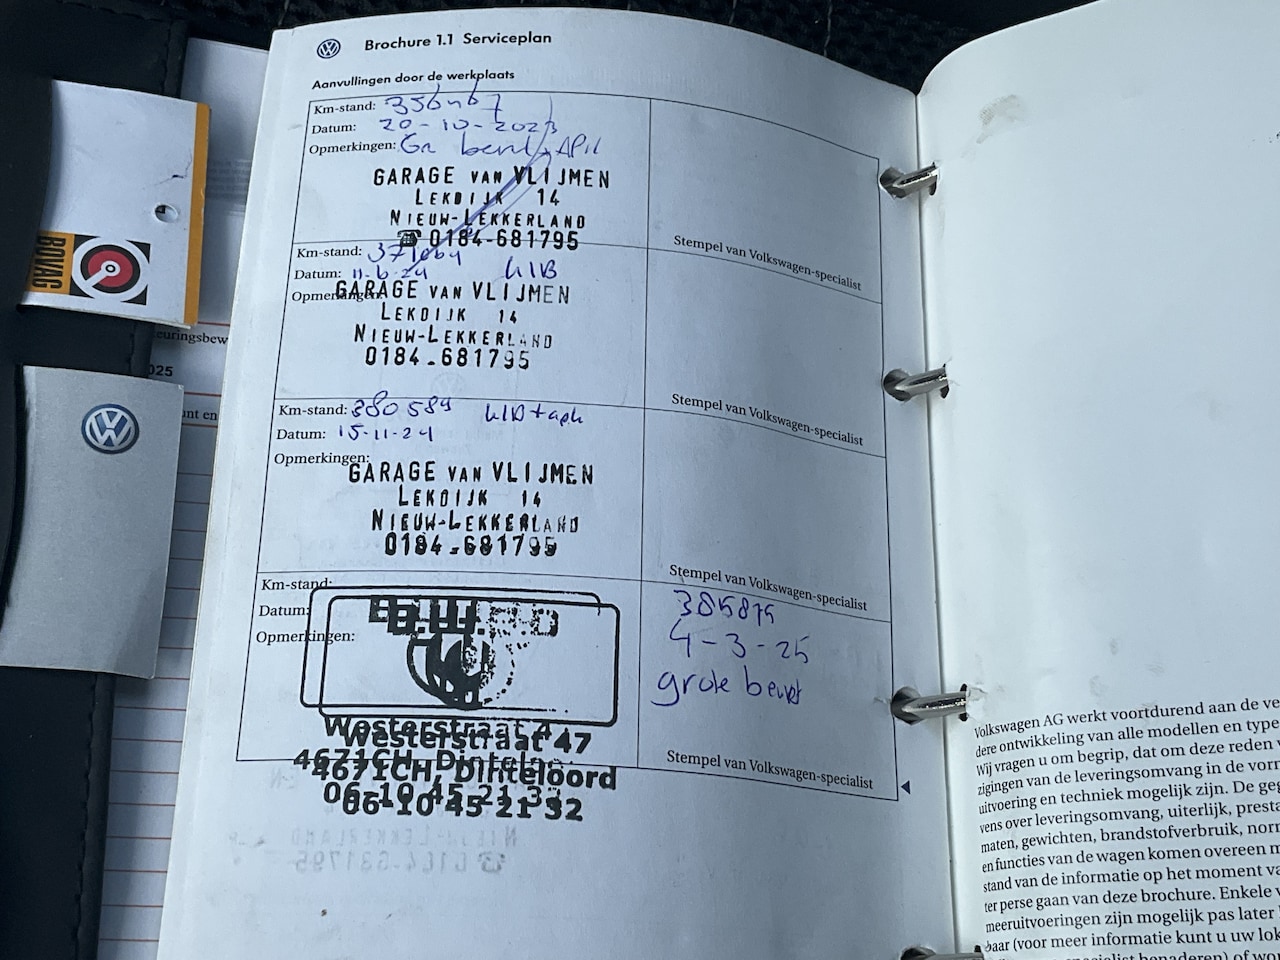 Brochure 1.1 Serviceplan
Aanvullingen door de werkplaats
Km-stand: 356467
Datum: 20-10-2023
Opmerkingen: Gr beurt, APK
GARAGE VAN VLIJMEN
LEKDIJK 14
NIEUW-LEKKERLAND
☎ 0184-681795
Stempel van Volkswagen-specialist
Km-stand:
Datum: 11-6-24 KlB
Opmerkingen:
GARAGE VAN VLIJMEN
LEKDIJK 14
NIEUW-LEKKERLAND
0184-681795
Stempel van Volkswagen-specialist
Km-stand: 380589 KlB + apk
Datum: 15-11-24
Opmerkingen:
GARAGE VAN VLIJMEN
LEKDIJK 14
NIEUW-LEKKERLAND
0184-681795
Stempel van Volkswagen-specialist
Km-stand:
Datum:
Opmerkingen:
Westerstraat 47
4671CH, Dinteloord
06 10 45 21 32
385875
4-3-25
grote beurt
Stempel van Volkswagen-specialist
BOVAG
euringsbew
025
unt en
Volkswagen AG werkt voortdurend aan de ve
dere ontwikkeling van alle modellen en type
Wij vragen u om begrip, dat om deze reden
zigingen van de leveringsomvang in de vorm
uitvoering en techniek mogelijk zijn. De geg
vens over leveringsomvang, uiterlijk, presta
maten, gewichten, brandstofverbruik, norm
en functies van de wagen komen overeen m
stand van de informatie op het moment va
ter perse gaan van deze brochure. Enkele
meeruitvoeringen zijn mogelijk pas later
baar (voor meer informatie kunt u uw lok